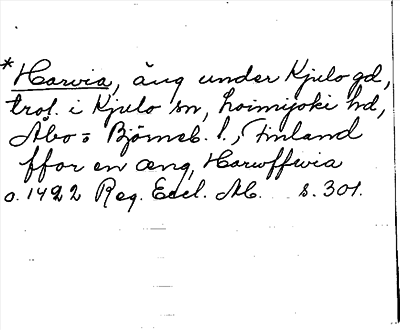 *Harvia, äng under Kjulo gd,
trol. i Kjulo sn, Loimijoki hd,
Åbo= Björneb. l., Finland
ffor en æng, Harwffwia
o. 1422 Reg. Eccl. Ab. s. 301.